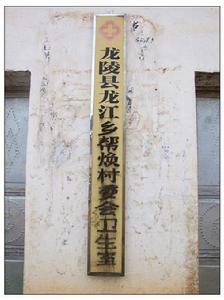 龙陵县龙江乡帮焕村委会卫生室